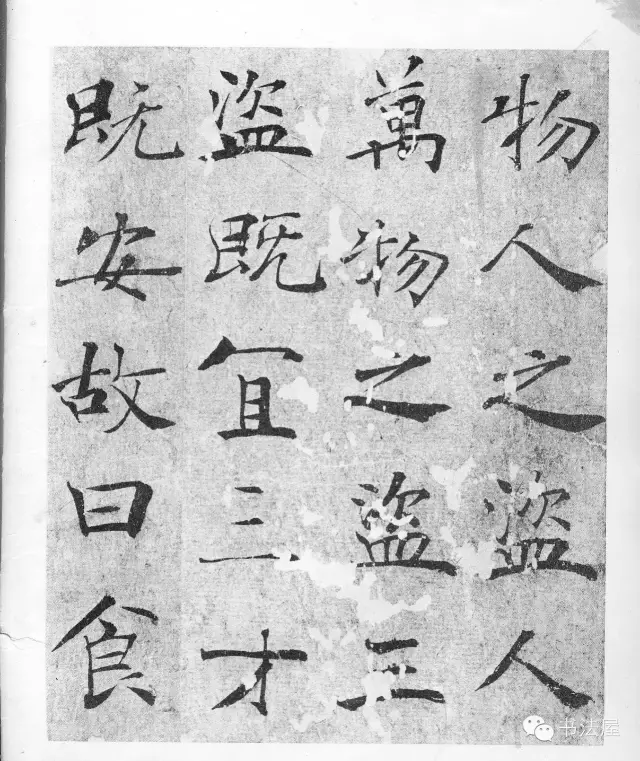 物人之盜人
萬物之盜三
盜既冝三才
既安故曰食
书法屋